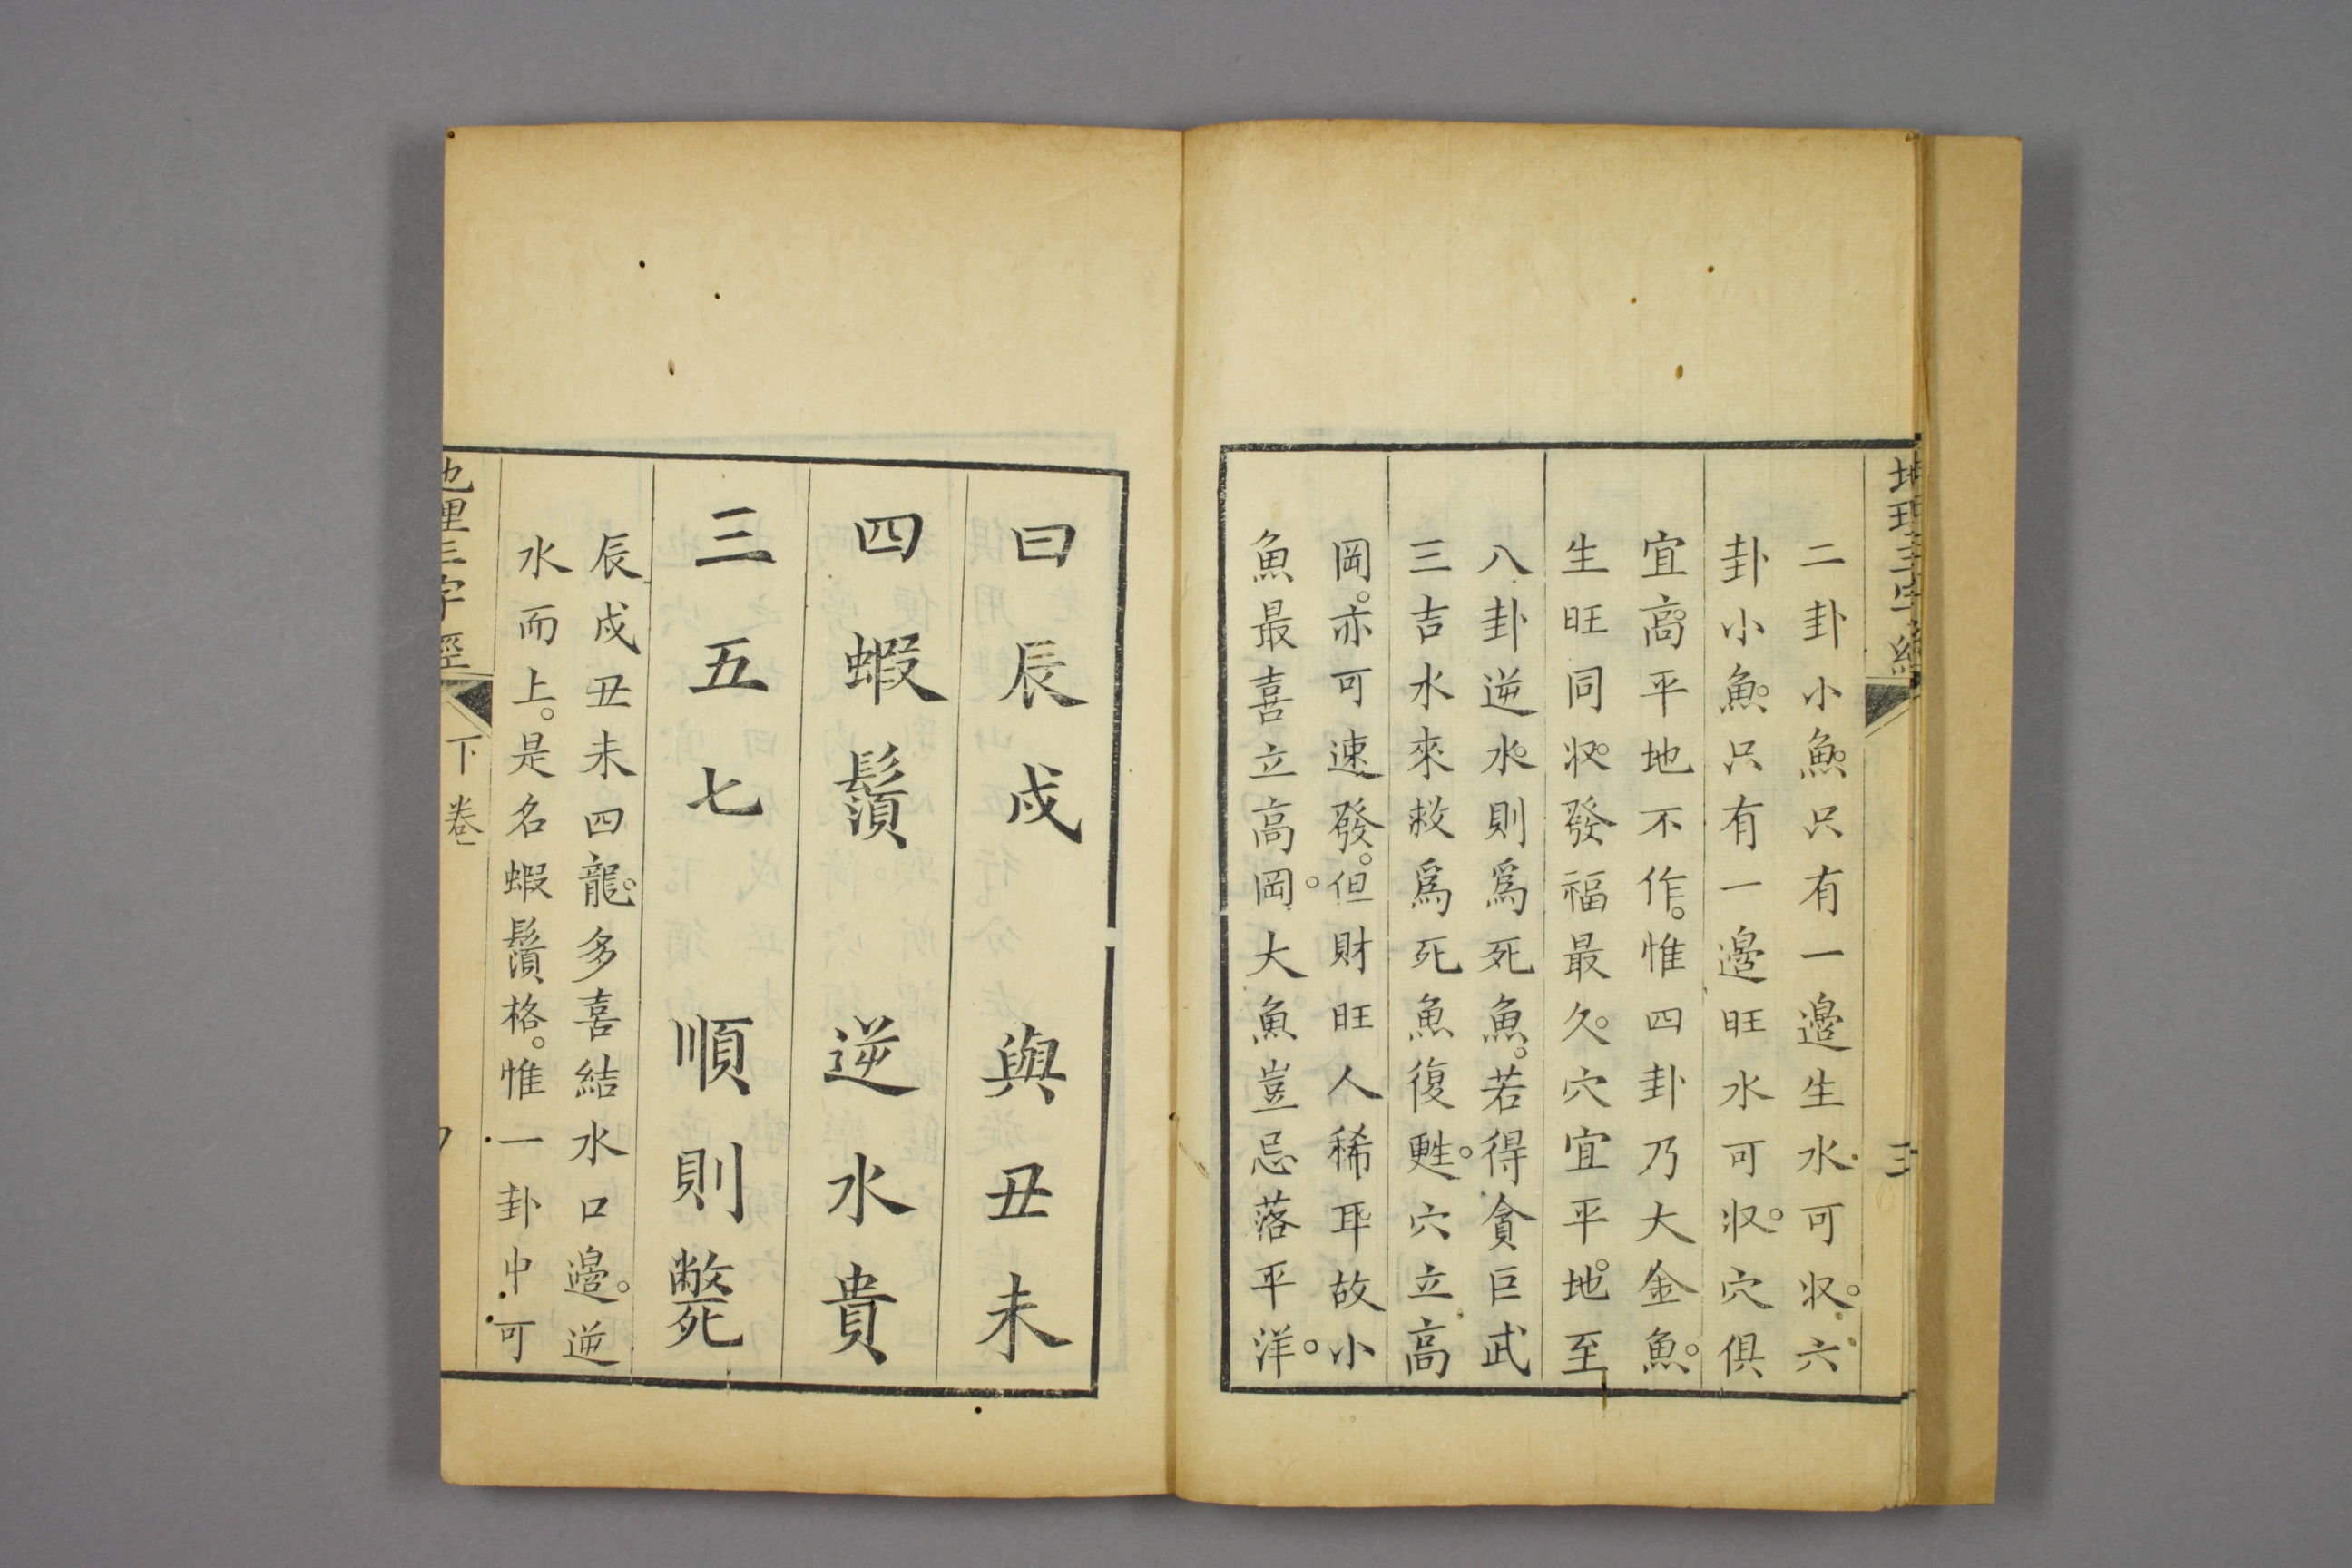 地理三字經
三
二卦小魚。只有一邊生水可収。六
卦小魚。只有一邊旺水可収。穴俱
宜高平地不作。惟四卦乃大金魚。
生旺同収。發福最久。穴宜平地。至
八卦逆水。則爲死魚。若得貪巨武
三吉水來救爲死魚復甦。穴立高
岡。亦可速發。但財旺人稀耳。故小
魚最喜立高岡。大魚豈忌落平洋。
曰辰戌 與丑未
四蝦鬚 逆水貴
三五七 順則斃
辰戌丑未四龍。多喜結水口邊。逆
水而上。是名蝦鬚格。惟一卦中可
地理三字經
下卷